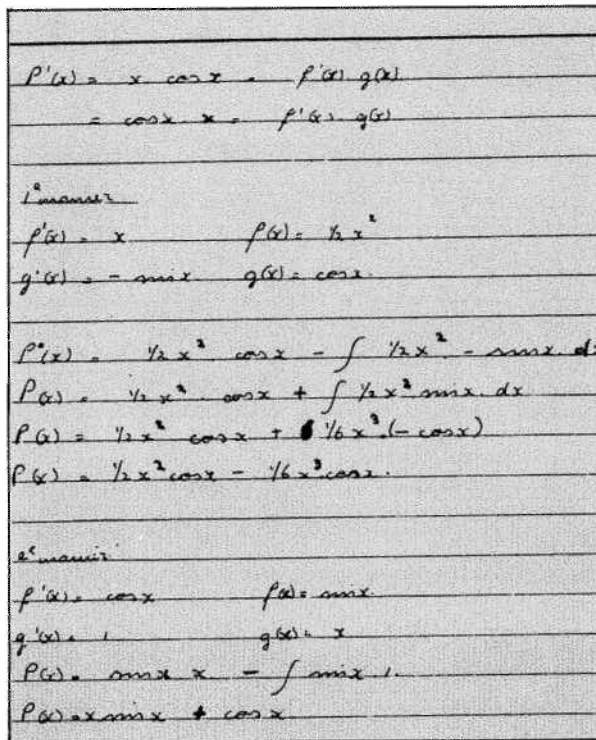 f'(x) = x . cosx = f'(x) . g(x)
= cosx . x = f'(x) . g(x)
1e manier
f'(x) = x f(x) = 1/2 x²
g'(x) = - sinx g(x) = cosx.
f'(x) = 1/2 x² . cosx - ∫ 1/2 x² . - sinx . dx
f(x) = 1/2 x² . cosx + ∫ 1/2 x² sinx . dx
f(x) = 1/2 x² cosx + 1/6 x³ . (- cosx)
f(x) = 1/2 x² cosx - 1/6 x³ cosx.
2e manier
f'(x) = cosx f(x) = sinx.
g'(x) = 1 g(x) = x
f(x) = sinx x - ∫ sinx 1.
f(x) = x sinx + cosx